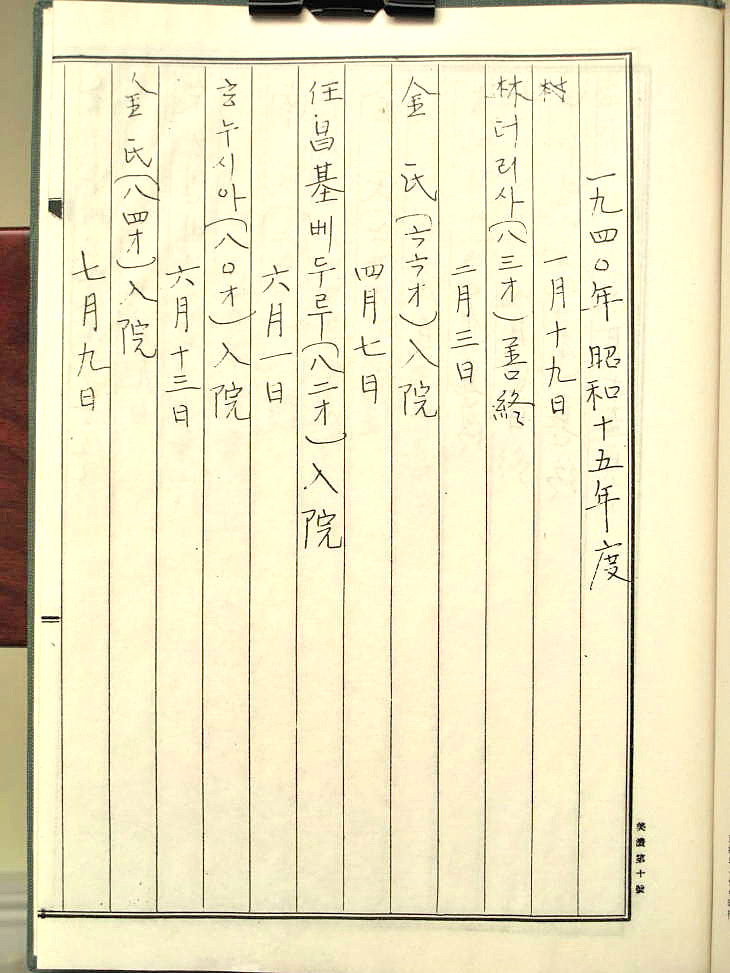 一九四〇年 昭和十五年度
一月十九日
林더리사(八三才)善終
二月三日
金 氏(六六才)入院
四月七日
任昌基베두루(八二才)入院
六月一日
玄누시아(八〇才)入院
六月十三日
金 氏(八四才)入院
七月九日
第十號